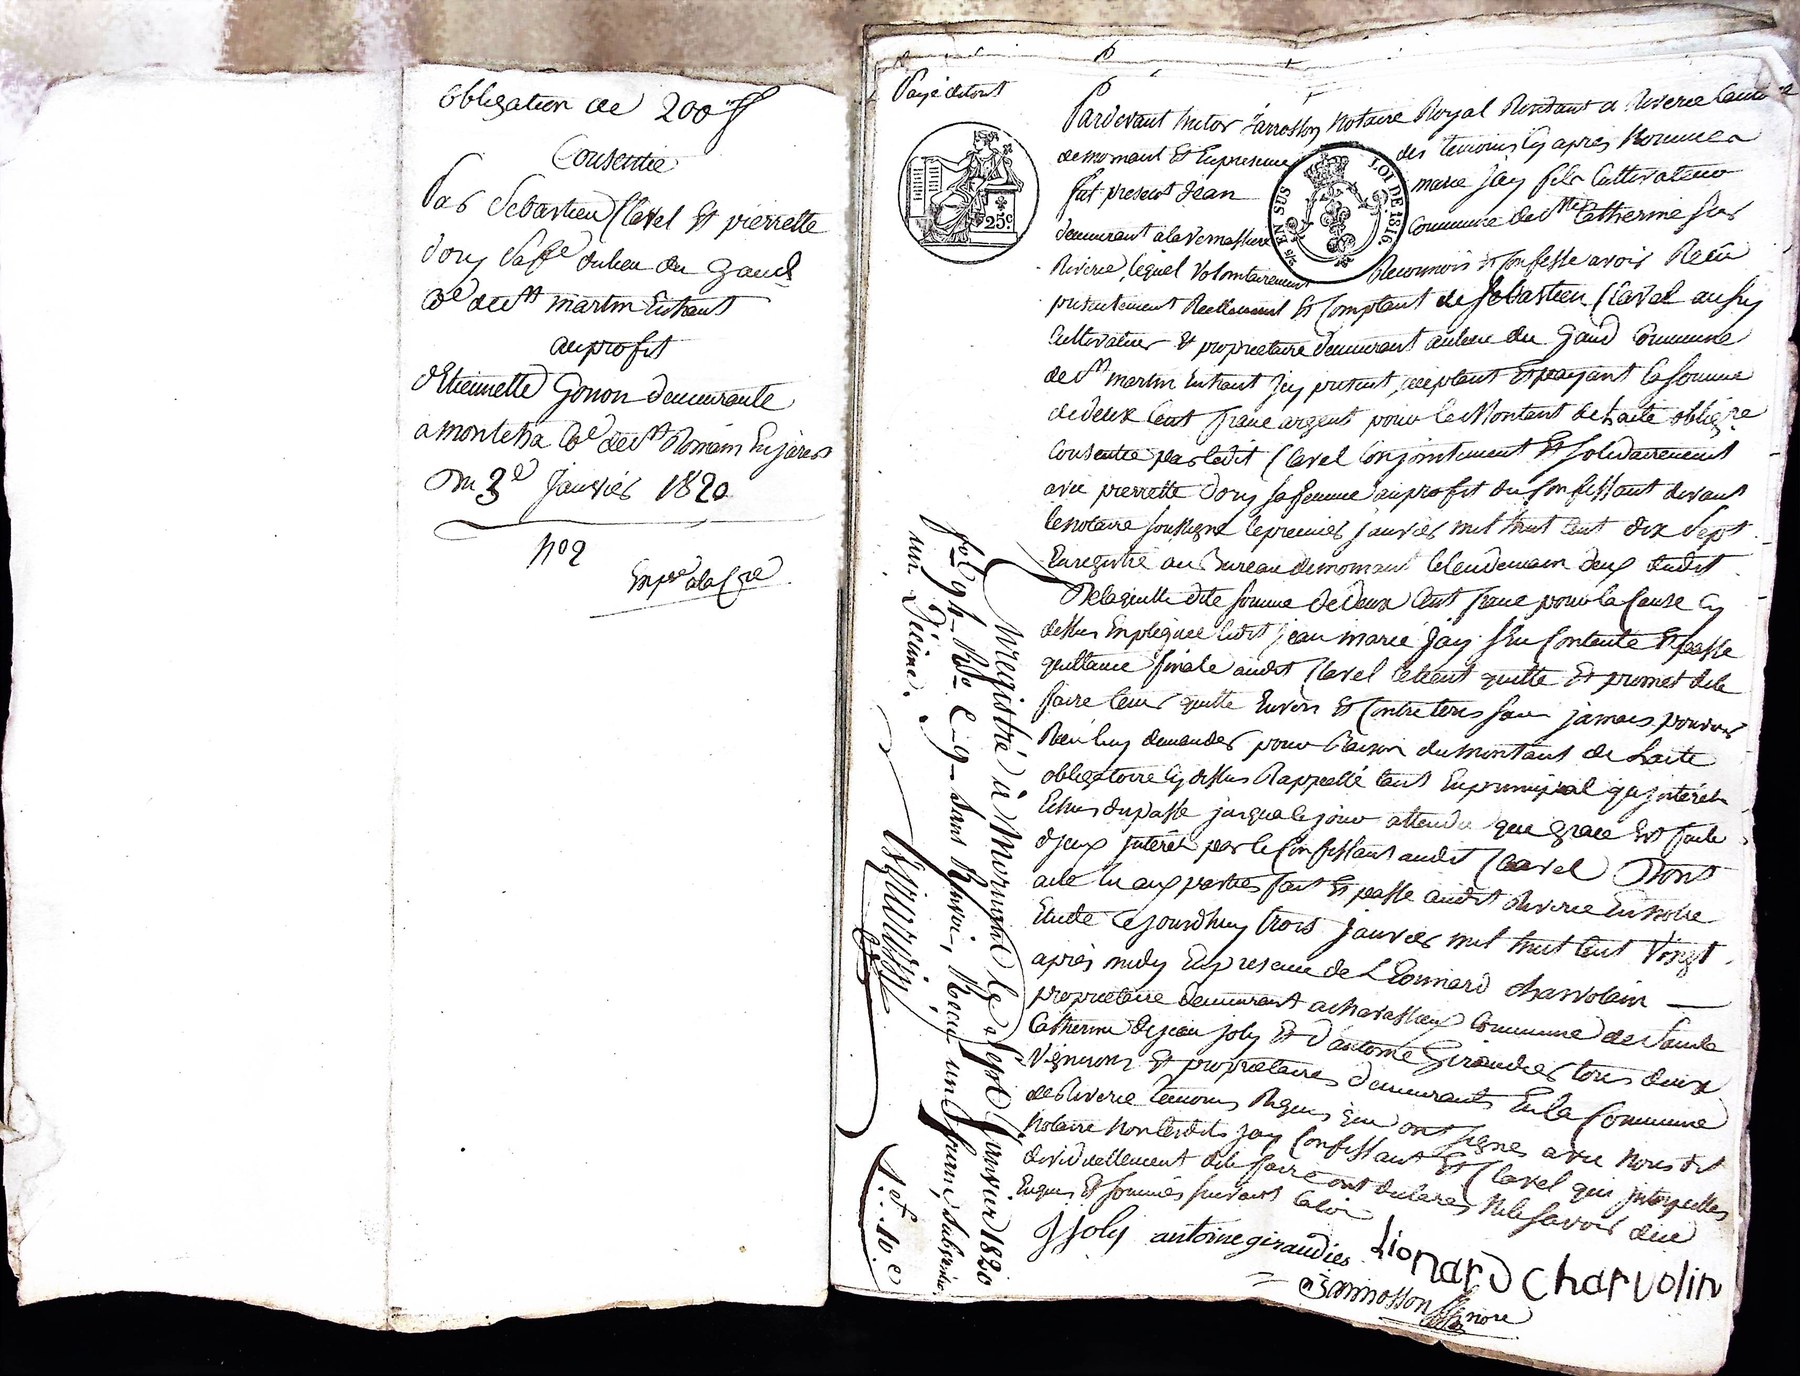 obligation de 200ff
Consentie
Par Sebastien Clavel Et pierrette
dory Sa fe du lieu du Gand
Cne de St martin En haut
au profit
d'Etiennette Gonon demeurante
a monteha Cne de St Romain En jarest
Du 3e Janvier 1820
No 2
Expée a la Gre
Payé de tout
25c
5/6 EN SUS
LOI DE 1816
Pardevant hector Zarrosson Notaire Royal Residant a Riverie Canton
de mornant Et En presence des temoins Cy après Nommés
fut present Jean marie Jay fils Cultivateur
demeurant a la vernassiere Commune de Ste Catherine sur
Riverie, lequel Volontairement Reconnois et Confesse avoir Reçu
presentement Reellement Et Comptant de Sebastien Clavel aussy
Cultivateur & proprietaire demeurant au lieu du Gand Commune
de St martin En haut Icy present, acceptant Et payant la Somme
de deux Cent franc argent pour le Montant de Lacte oblige
Consentie par ledit Clavel Conjointement Et Solidairement
avec pierrette dory sa femme au profit du Confessant devant
le notaire soussigné le premier janvier mil huit Cent dix Sept
Enregistré au Bureau de mornant le lendemain deux dudit
De laquelle dite somme de deux Cent franc pour la Cause Cy
dessus Expliquée ledit jean marie Jay s'en Contente Et passe
quittance finale audit Clavel le tient quitte Et promet de le
faire tenir quitte Envers Et Contre tous sans jamais pouvoir
Rien luy demander pour Raison du montant de Lacte
obligatoire Cy dessus Rappellé tant En principal qu'interêts
Echus du passé jusqua ce jour attendu que grace Est faite
d'yeux interêts par le Confessant audit Clavel Dont
acte lu aux parties fait Et passé audit Riverie En notre
Etude Ce jourdhuy trois janvier mil huit Cent Vingt
après midy En presence de Leonnard Charvolin
proprietaire demeurant a Charassieux Commune de Sainte
Catherine de jean joly Et d'antoine Giraudier tous deux
Vignerons Et proprietaires demeurants En la Commune
de Riverie temoins Requis qui ont signés avec Nous dit
Notaire Non lesdits Jay Confessant Et Clavel qui interpellés
dividuellement de le faire ont declarés Ne le Savoir due
Enquis Et Sommés suivant la loi
J Joly antoine giraudier Lionard Charvolin
Zarrosson nore
Enregistré à Mornant le Sept Janvier 1820
fol 94 Ro C 9 Sans Renvoi, Recu un franc, Subvention
un Décime.
1f..10.c